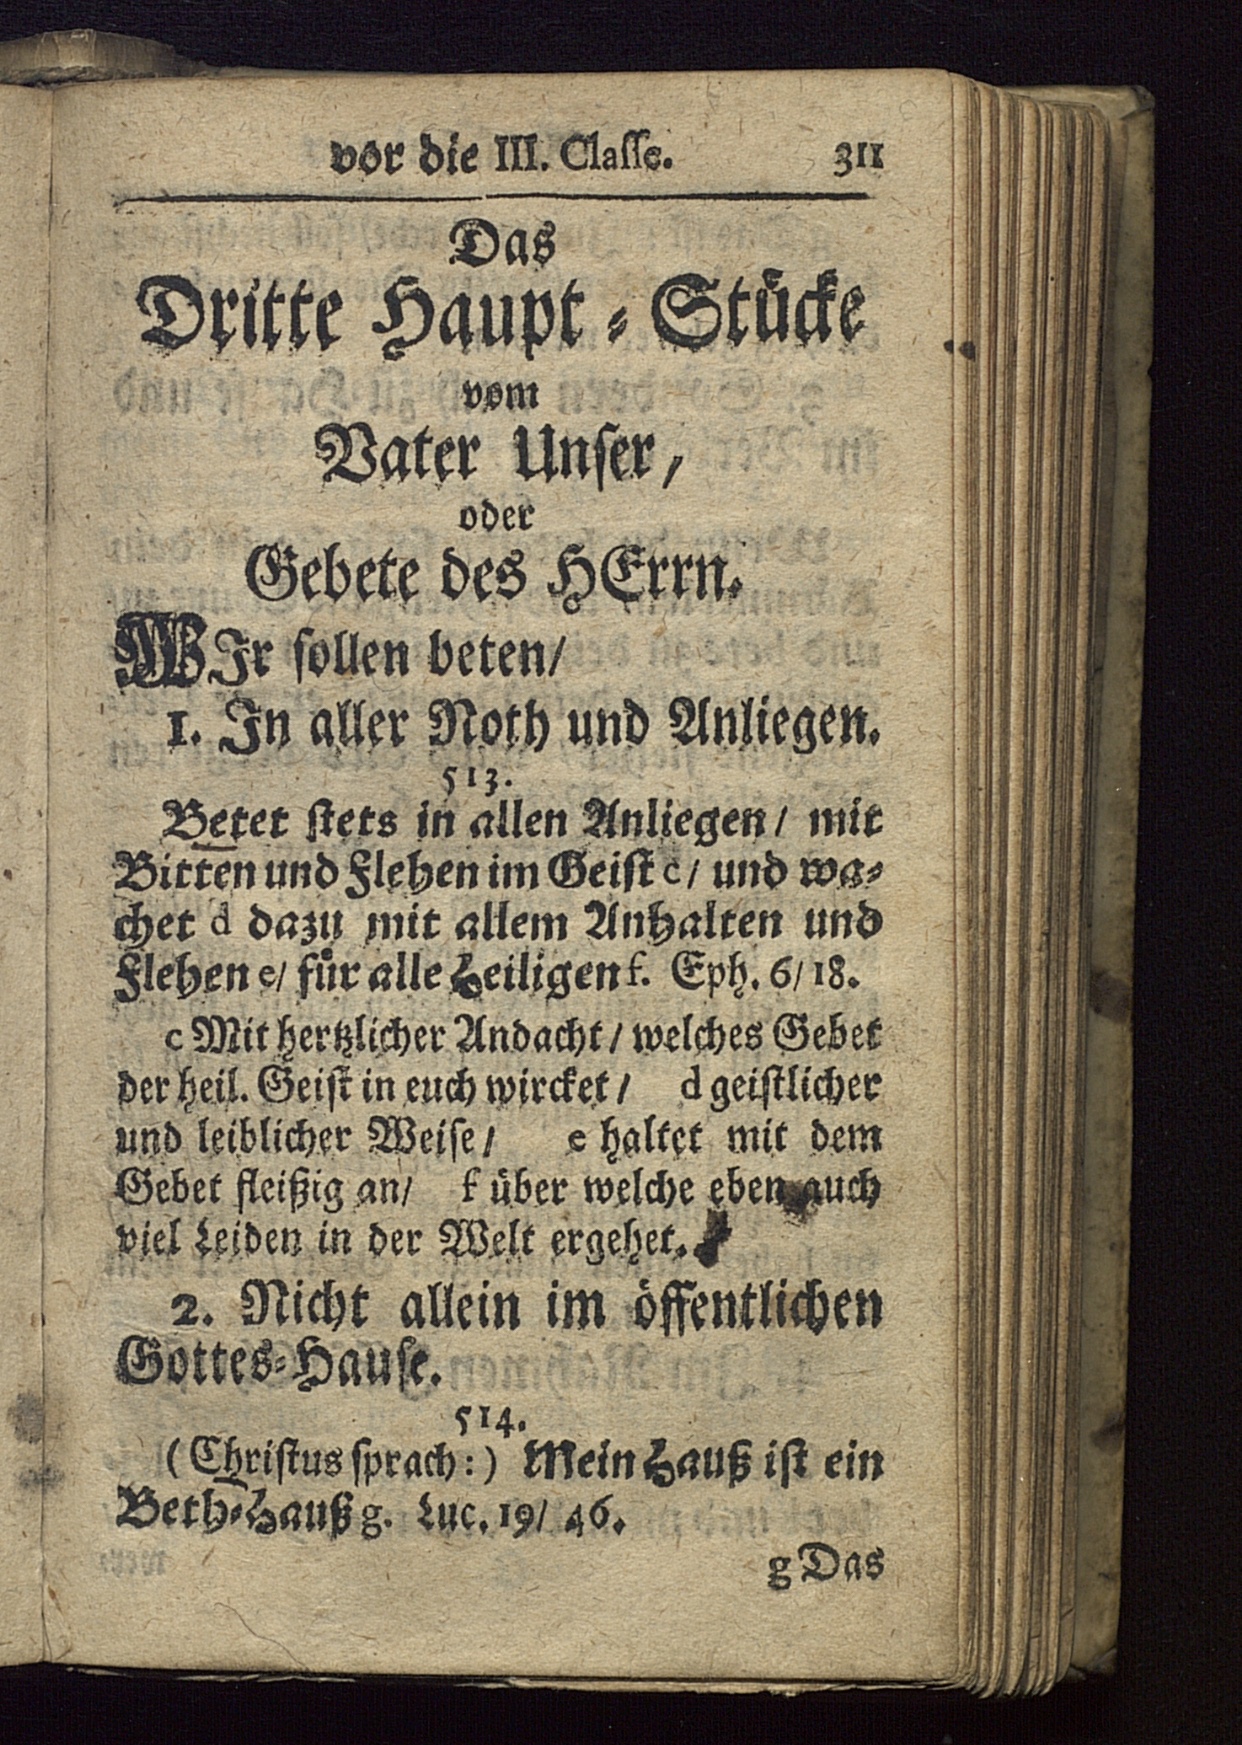 vor die III. Classe. 311
Das
Dritte Haupt-Stücke
vom
Vater Unser,
oder
Gebete des HErrn.
WIr sollen beten/
1. In aller Noth und Anliegen.
513.
Betet stets in allen Anliegen/ mit
Bitten und Flehen im Geist c/ und wa-
chet d dazu mit allem Anhalten und
Flehen e/ für alle Heiligen f. Eph. 6/ 18.
c Mit hertzlicher Andacht/ welches Gebet
der heil. Geist in euch wircket/ d geistlicher
und leiblicher Weise/ e haltet mit dem
Gebet fleißig an/ f über welche eben auch
viel Leiden in der Welt ergehet.
2. Nicht allein im öffentlichen
Gottes-Hause.
514.
(Christus sprach:) Mein Hauß ist ein
Beth-Hauß g. Luc. 19/ 46.
g Das